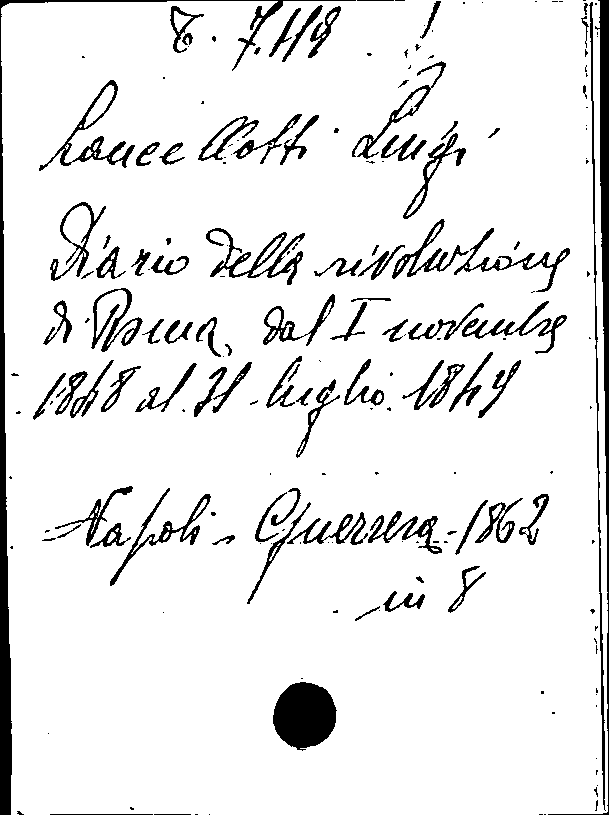 7.119
Lancellotti Luigi
Diario della rivoluzione
di Roma, dal I novembre
1848 al 31 luglio 1849
Napoli - Guerrera - 1862
in 8